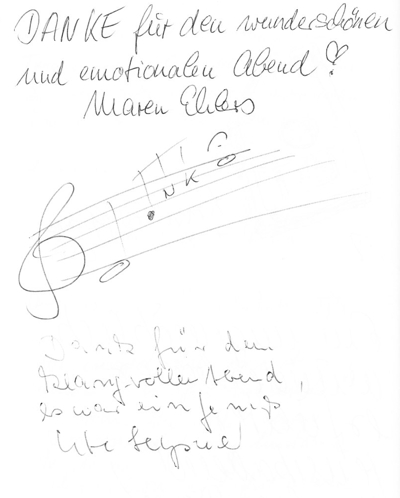 DANKE für den wunderschönen
und emotionalen Abend!
Maren Ehlers
N K
Dank für den
klangvollen Abend,
es war ein Genuß
Ute